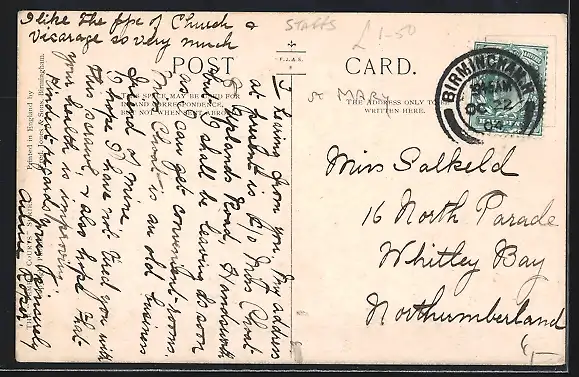 I like the ppc of Church &
Vicarage so very much
STAFFS
£1-50
F.J.&S.
POST CARD.
THIS SPACE MAY BE USED FOR
INLAND CORRESPONDENCE,
BUT NOT WHEN SENT ABROAD
THE ADDRESS ONLY TO BE
WRITTEN HERE.
St MARY
BIRMINGHAM
OC 22
Miss Salkeld
16 North Parade
Whitley Bay
Northumberland
hearing from you. My address
at present is c/o Miss Choat
Road, Handsworth
but I shall be leaving so soon
as I can get convenient rooms.
Miss Choat is an old business
friend of mine
I hope I have not tired you with
this scrawl, & also hope that
your health is improving.
Kindest regards, yours sincerely
Printed in England by